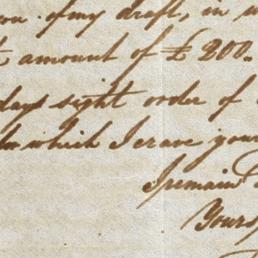 of my draft, in
amount of £ 200.
days sight order of
which I crave your
I remain
Yours